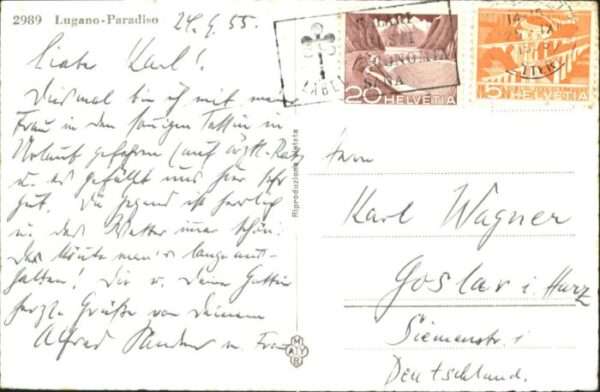 2989 Lugano-Paradiso
24.9.55.
Lieber Karl!
Diesmal bin ich mit meiner
Frau in den sonnigen Tessin in
Urlaub gefahren (auf ärztl. Rat)
u. es gefällt uns hier sehr
gut. Die Gegend ist herrlich
u. das Wetter immer schön.
Das könnte man's lange aus-
halten! Dir u. Deine Gattin
herzl. Grüße von Deinem
Alfred u. Frau
Riproduzione vietata
20 HELVETIA
5 HELVETIA
Herrn
Karl Wagner
Goslar i. Harz
Siemensstr. 1
Deutschland.